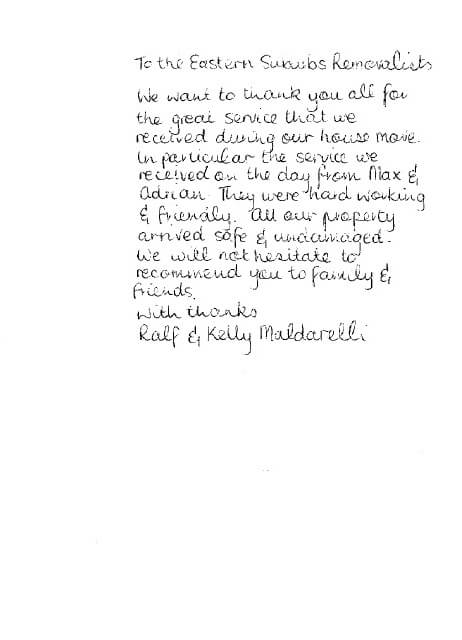 To the Eastern Suburbs Removalists
We want to thank you all for
the great service that we
received during our house move.
In particular the service we
received on the day from Max &
Adrian. They were hard working
& friendly. All our property
arrived safe & undamaged.
We will not hesitate to
recommend you to family &
friends.
With thanks
Ralf & Kelly Maldarelli